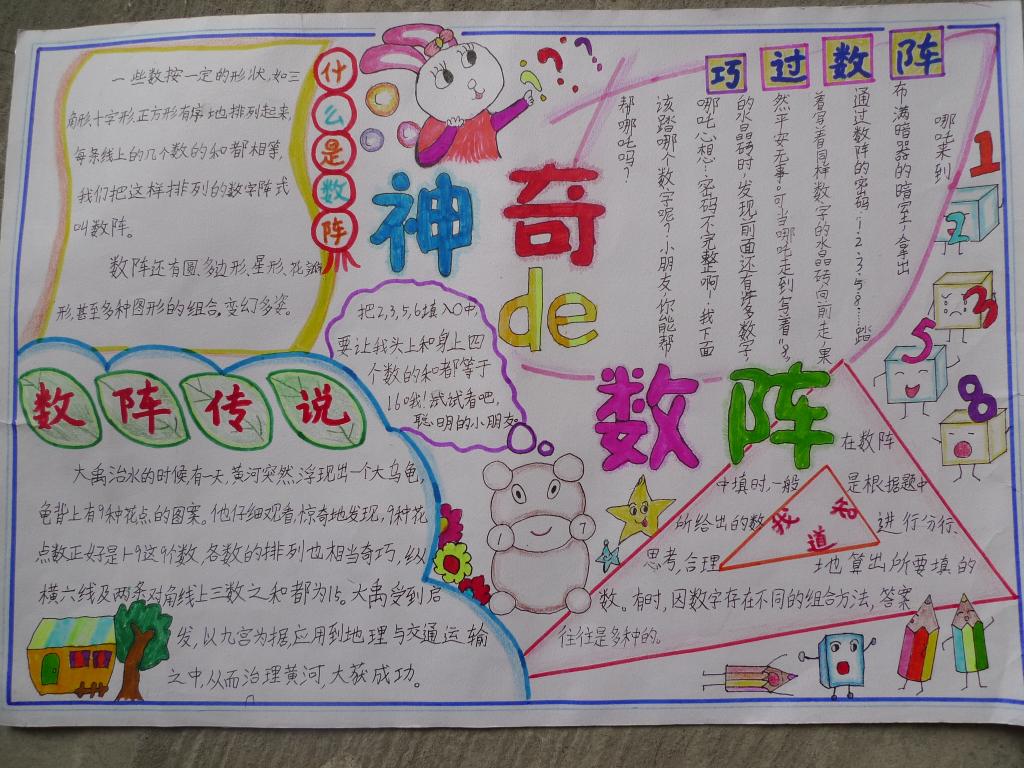 什么是数阵
一些数按一定的形状,如三
角形,十字形,正方形有序地排列起来,
每条线上的几个数的和都相等,
我们把这样排列的数字阵式
叫数阵。
数阵还有圆,多边形,星形,花瓣
形,甚至多种图形的组合,变幻多姿。
神奇
de
数阵
巧过数阵
哪吒来到
布满暗器的暗室,拿出
通过数阵的密码:1·2·3·5·8……踏
着写着同样数字的水晶砖向前走,果
然平安无事。可当哪吒走到写着“8”
的水晶砖时,发现前面还有许多数字,
哪吒心想:“密码不完整啊!我下面
该踏哪个数字呢?小朋友,你能帮
帮哪吒吗?
1
2
3
5
8
把2,3,5,6填入○中,
要让我头上和身上四
个数的和都等于
16哦!试试看吧,
聪明的小朋友。
7
7
数阵传说
大禹治水的时候有一天,黄河突然浮现出一个大乌龟,
龟背上有9种花点的图案。他仔细观看,惊奇地发现,9种花
点数正好是1-9这9个数,各数的排列也相当奇巧,纵
横六线及两条对角线上三数之和都为15。大禹受到启
发,以九宫为据,应用到地理与交通运输
之中,从而治理黄河,大获成功。
我知道
在数阵
中填时,一般是根据题中
所给出的数进行分行、
思考,合理地算出所要填的
数。有时,因数字存在不同的组合方法,答案
往往是多种的。